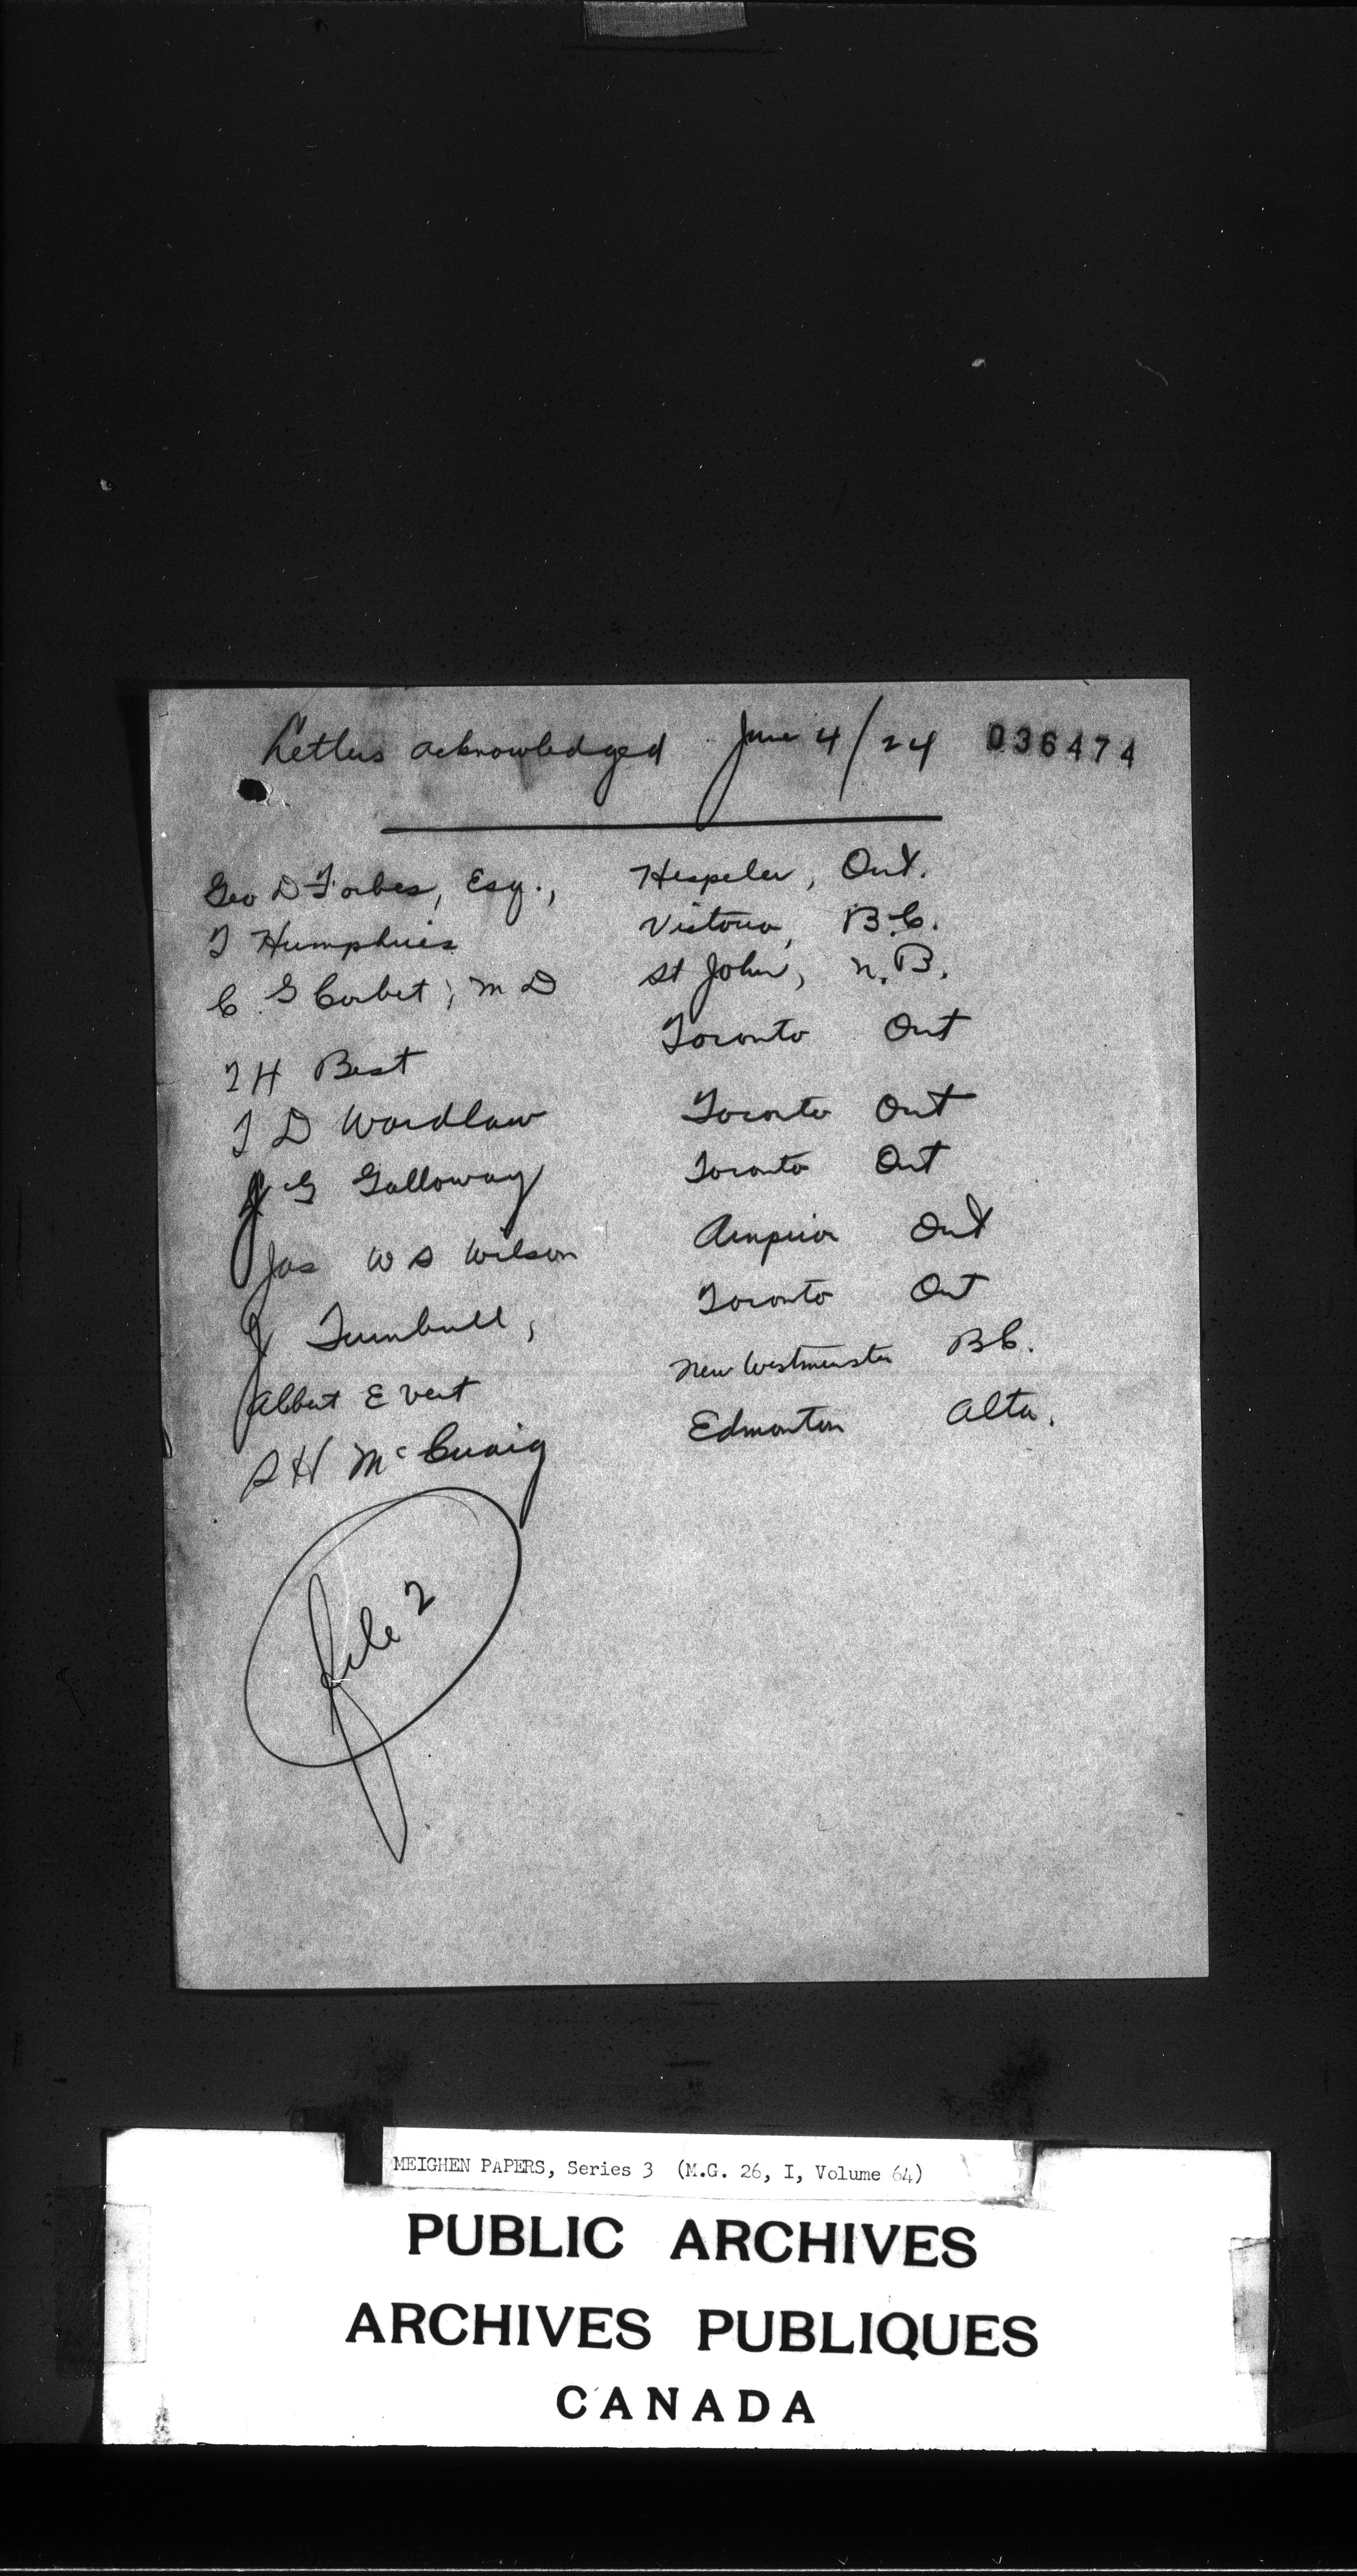 Letters acknowledged June 4/24 036474
Geo D Forbes, Esq., Hespeler, Ont.
T Humphries Victoria, B.C.
C. G Corbet, M D St John, N.B.
T H Best Toronto Ont
T D Wardlaw Toronto Ont
J G Galloway Toronto Ont
Jas W S Wilson Arnprior Ont
J Turnbull, Toronto Ont
Albert E Vert New Westminster BC.
S H McCuaig Edmonton Alta.
file 2
MEIGHEN PAPERS, Series 3 (M.G. 26, I, Volume 64)
PUBLIC ARCHIVES
ARCHIVES PUBLIQUES
CANADA